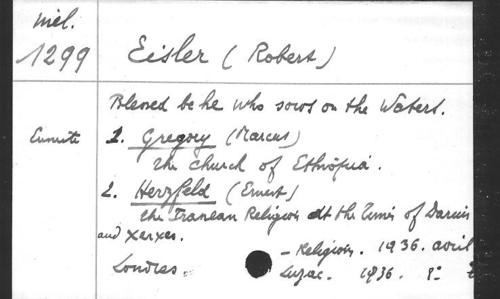 Miel.
1299
Eisler (Robert)
Blessed be he who sows on the Waters.
Ensuite
1. Gregory (Marcus)
The Church of Ethiopia.
2. Herzfeld (Ernest)
the Iranean Religion at the Times of Darius
and Xerxes.
– Religion. 1936. avril
Londres. Luzac. 1936. 8°